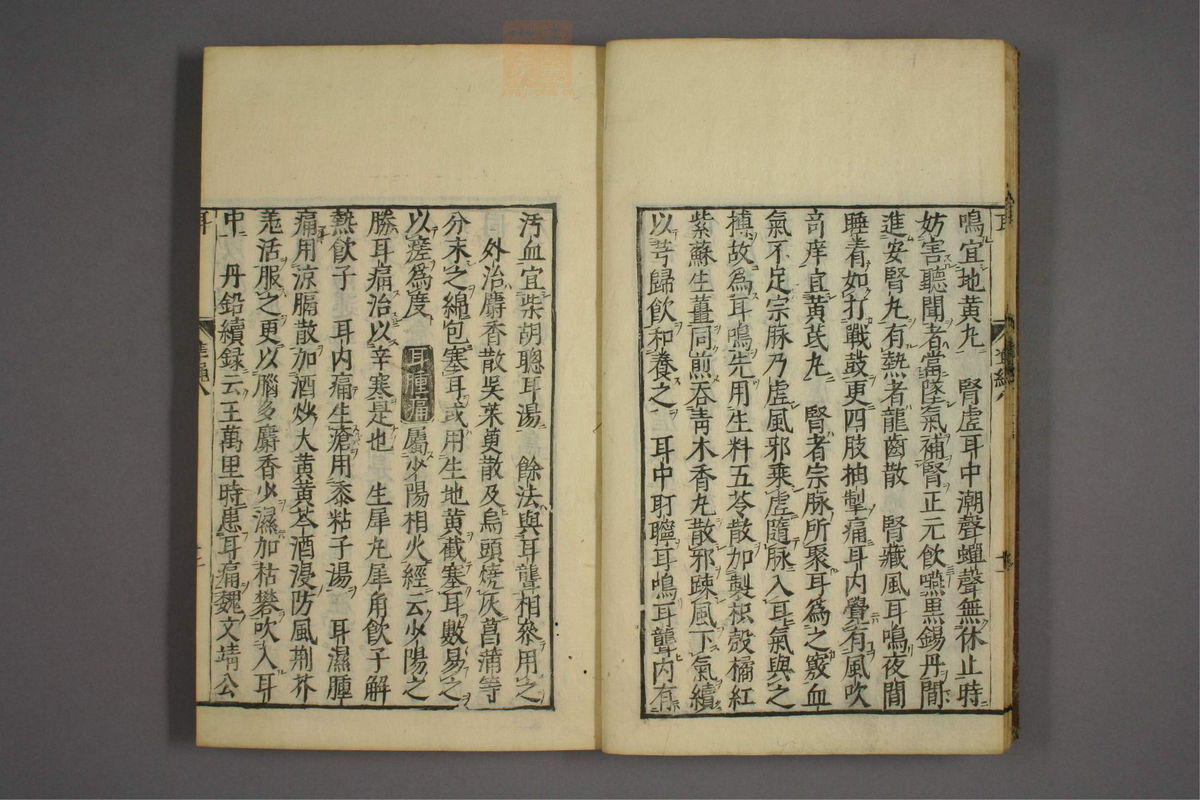 鳴宜地黃丸　腎虛耳中潮聲蟬聲無休止時
妨害聽聞者當墜氣補腎正元飲嚥黑錫丹間
進安腎丸有熱者龍齒散　腎藏風耳鳴夜間
睡着如打戰鼓更四肢抽掣痛耳內覺有風吹
奇痒宜黃芪丸　腎者宗脉所聚耳爲之竅血
氣不足宗脉乃虛風邪乘虛隨脉入耳氣與之
搏故爲耳鳴先用生料五苓散加製枳殼橘紅
紫蘇生薑同煎吞靑木香丸散邪踈風下氣續
以芎歸飲和養之　耳中耵聹耳鳴耳聾內有
汚血宜柴胡聰耳湯　餘法與耳聾相叅用之
外治麝香散吳茱萸散及烏頭燒灰菖蒲等
分末之綿包塞耳或用生地黃截塞耳數易之
以瘥爲度　耳腫痛屬少陽相火經云少陽之
勝耳痛治以辛寒是也　生犀丸犀角飲子解
熱飲子　耳內痛生瘡用黍粘子湯　耳濕腫
痛用涼膈散加酒炒大黃黃芩酒浸防風荆芥
羗活服之更以腦多麝香少濕加枯礬吹入耳
中　丹鉛續録云王萬里時患耳痛魏文靖公
耳